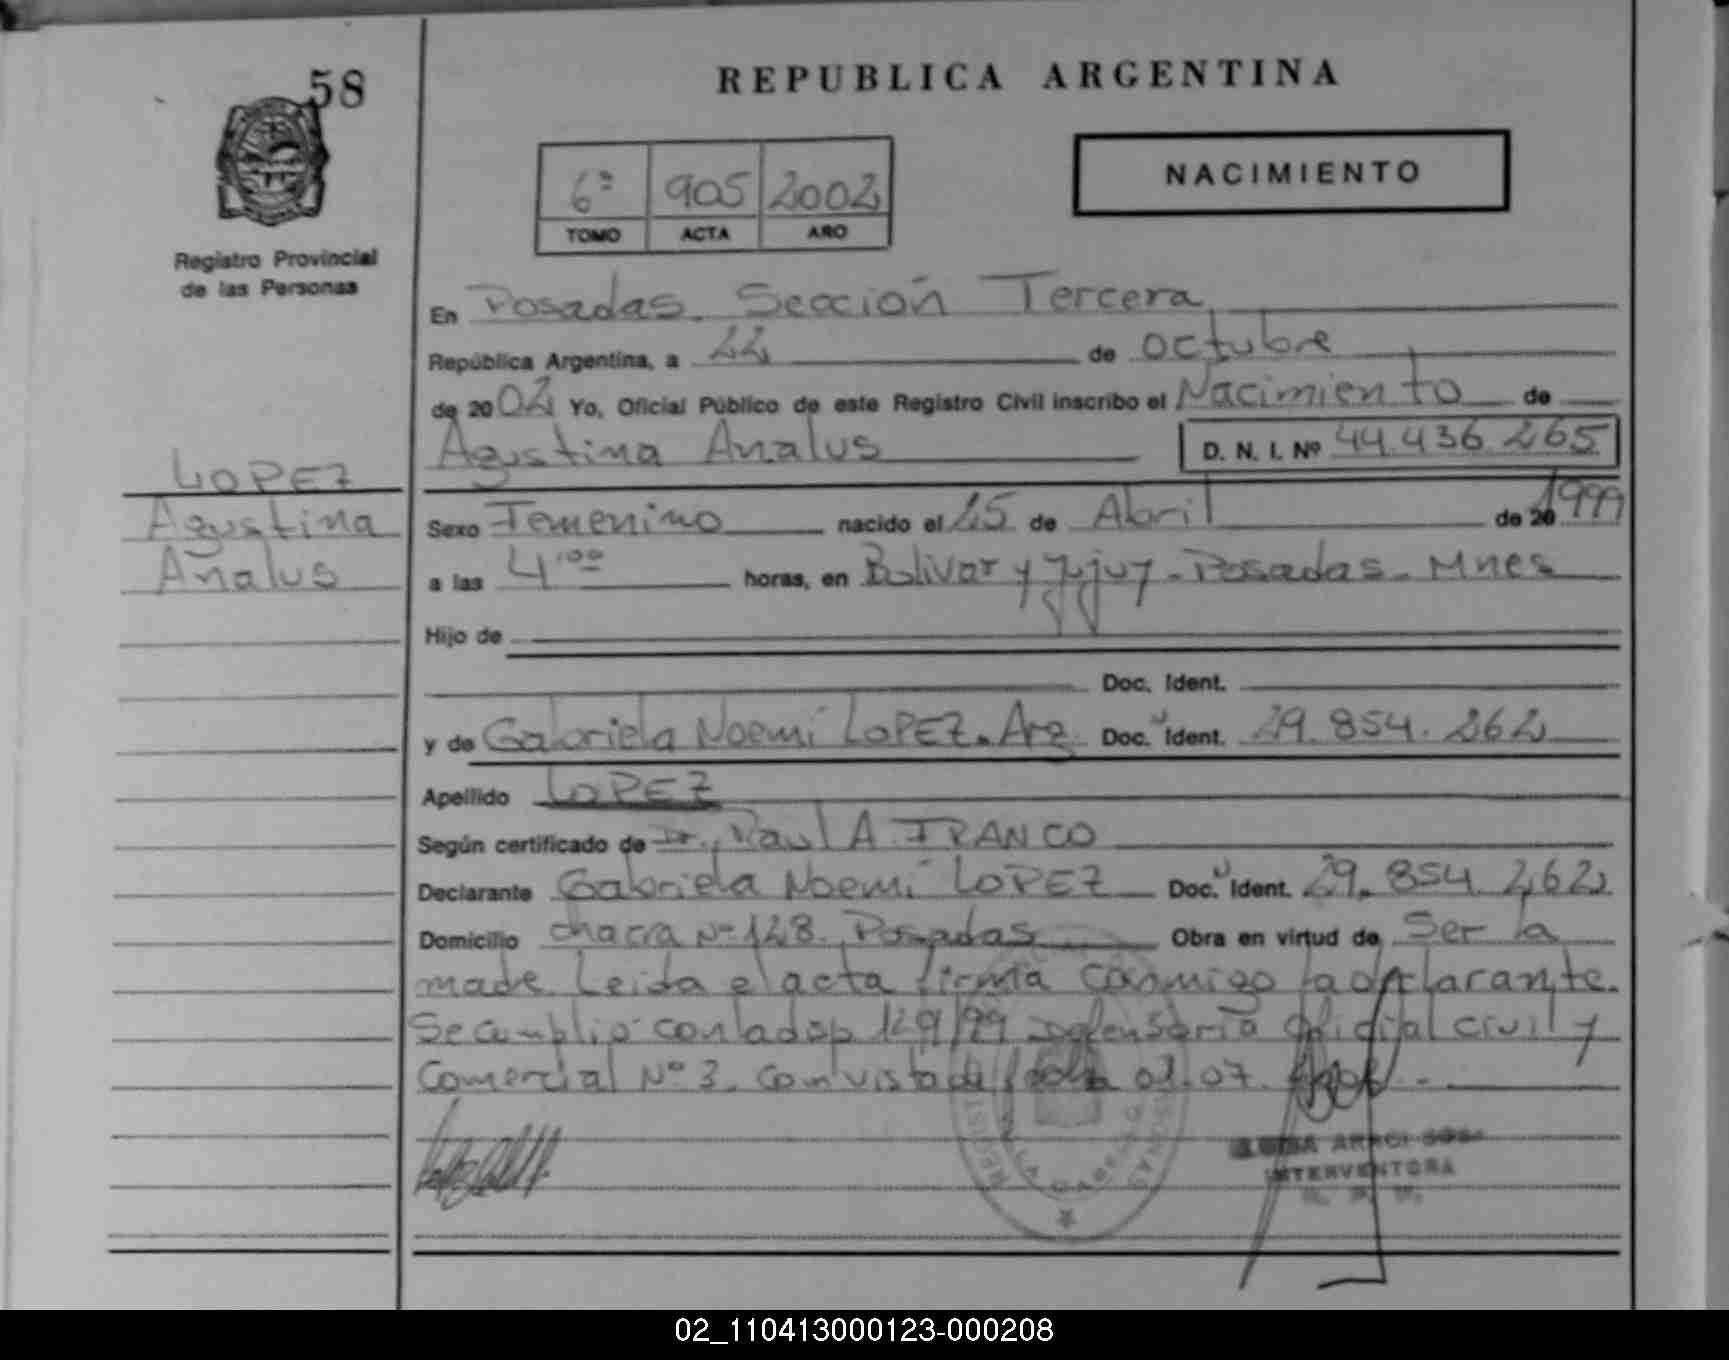 58
REPUBLICA ARGENTINA
6º 905 2002
TOMO ACTA AÑO
NACIMIENTO
Registro Provincial
de las Personas
En Posadas. Sección Tercera
República Argentina, a 22 de octubre
de 2002 Yo, Oficial Público de este Registro Civil inscribo el Nacimiento de
Agustina Analus D. N. I. Nº 44.436.265
LOPEZ
Agustina
Analus
Sexo Femenino nacido el 25 de Abril de 20 1999
a las 4'00 horas, en Bolivar y Jujuy - Posadas - Mnes
Hijo de
Doc. Ident.
y de Gabriela Noemí LOPEZ. Arg. Doc. Ident. 29.854.262
Apellido LOPEZ
Según certificado de Dr. Raul A FRANCO
Declarante Gabriela Noemí LOPEZ Doc. Ident. 29.854.262
Domicilio chacra Nº 128. Posadas Obra en virtud de Ser la
madre. Leida el acta firma conmigo la declarante.
Se cumplió con la disp 129/99 Defensoria Oficial civil y
Comercial Nº 3. Con vista de 07.
INTERVENTORA
02_110413000123-000208